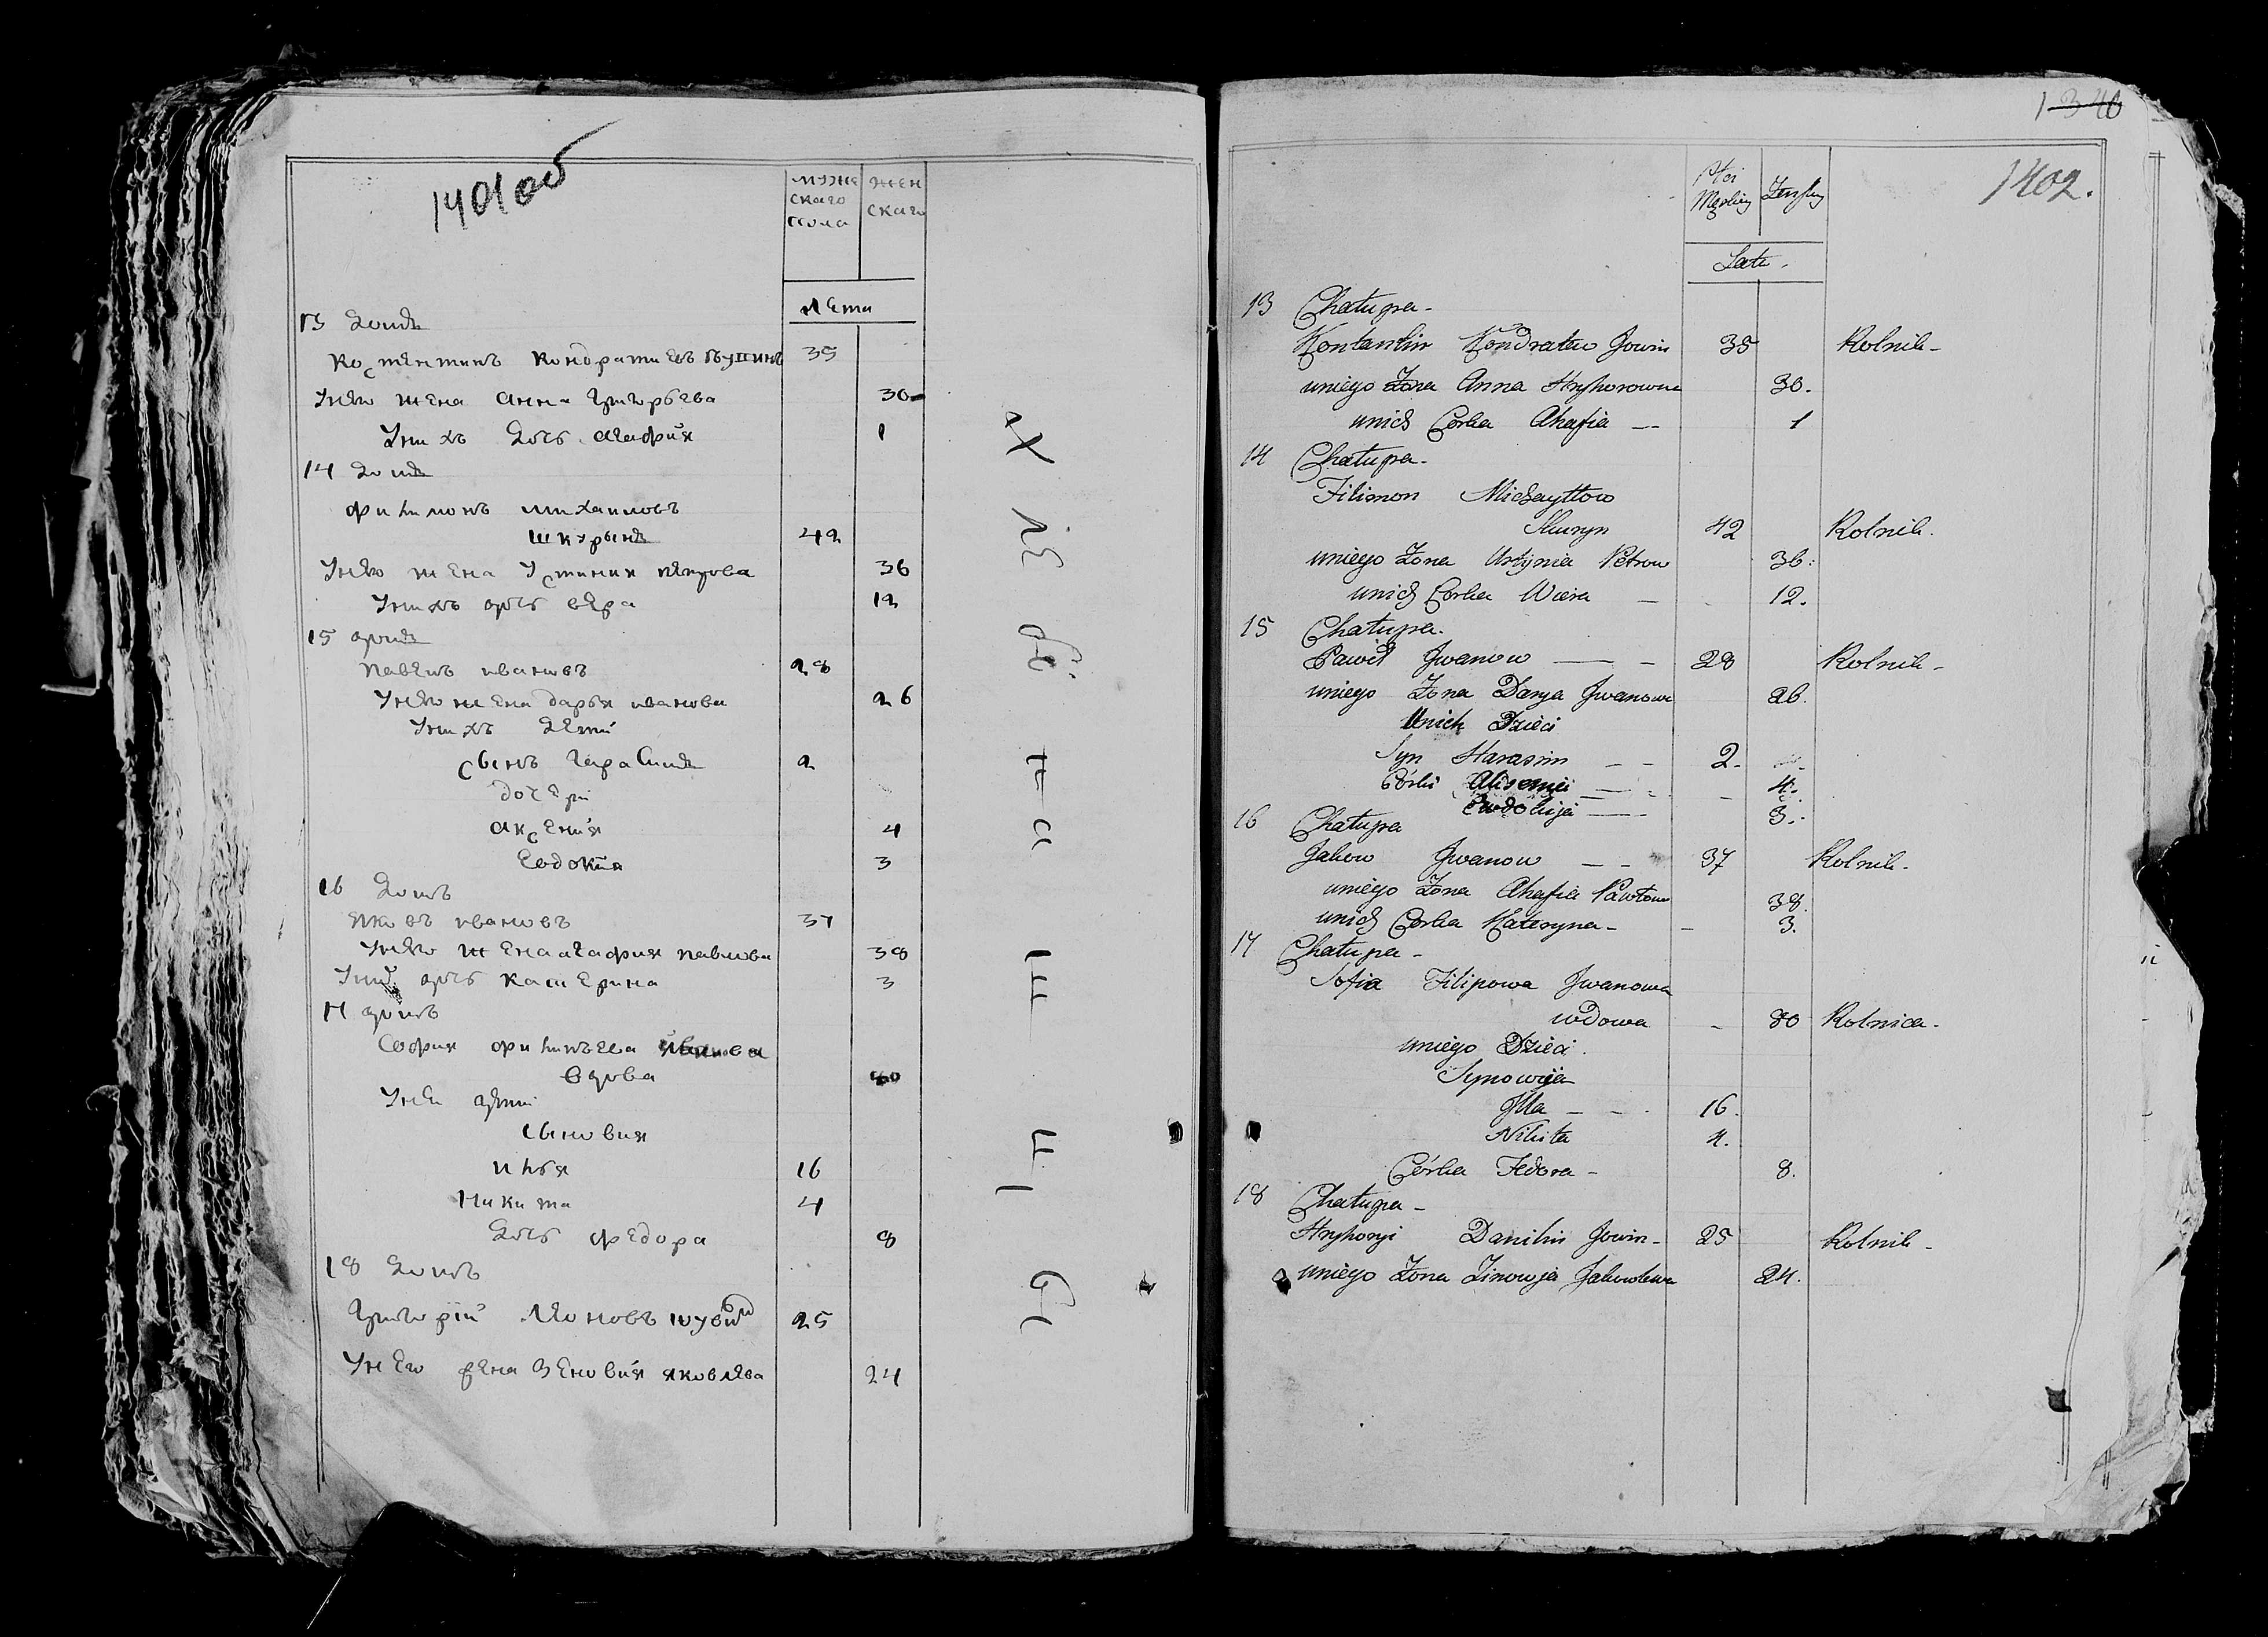 1401об
мужескаго пола
женскаго
лета
13 домъ
костентинъ кондратиевъ 35
унѣго жена анна григорьева 30
унихъ дочь агафия 1
14 домъ
филимонъ михаиловъ
шкурынъ 42
унѣго жена устиния петрова 36
унихъ дочь вѣра 12
15 домъ
павелъ ивановъ 28
унѣго жена дарья иванова 26
унихъ дети
сынъ герасимъ 2
дочери
аксения 4
евдокия 3
16 домъ
яковъ ивановъ 37
унѣго жена агафия павлова 38
дочь катерина 3
17 домъ
софия филипьева иванова
вдова 80
унеи дети
сыновия
илья 16
никита 4
дочь федора 8
18 домъ
григорий 25
унего жена зеновия яковлева 24
хлебопашцы
1340
1402.
Płci Męskiej
Żeńskiej
Lata.
13 Chałupa.
Konstantin Kondratiew Jowin 35 Rolnik
uniego Żona Anna Hryhorowna 30.
unich Corka Ahafia 1
14 Chałupa.
Filimon Michayłow
Skuryn 42 Rolnik.
uniego Żona Ustynia Petrow 36.
unich Corka Wiera 12.
15 Chałupa.
Paweł Jwanow 28 Rolnik
uniego Żona Darya Jwanowa 26.
Unich Dzieci
Syn Harasim 2.
Córki Aksenija 4.
Ewdokija 3.
16 Chałupa
Jakow Jwanow 37 Rolnik.
uniego Żona Ahafia Pawłowa 38.
unich Córka Kateryna 3.
17 Chałupa
Sofia Filipowa Jwanowa
wdowa 80 Rolnica.
uniego Dzieci.
Synowija
Jlla 16.
Nikita 4.
Córka Fedora 8.
18 Chałupa
Hryhoryi Danilin Jowin 25 Rolnik
uniego Żona Zinowja Jakowlewa 24.